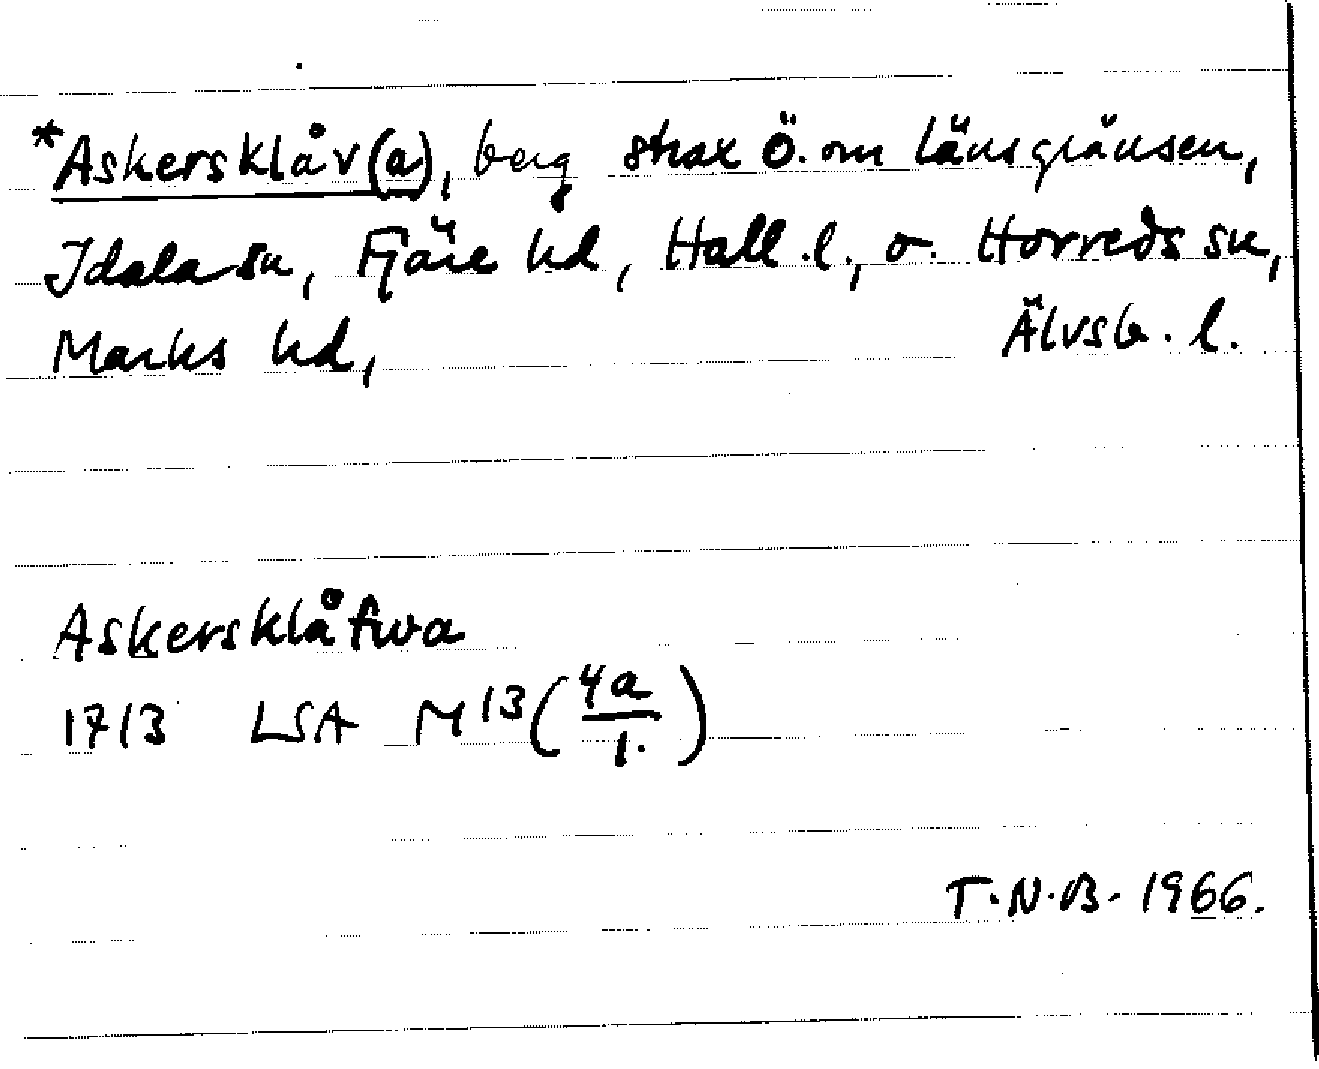 *Askersklåv(a), berg strax ö. om länsgränsen,
Idala sn, Fjäre hd, Hall. l., o. Horreds sn,
Marks hd, Älvsb. l.
Askersklåfwa
1713 LSA M13(4a/1.)
T.N.B. 1966.